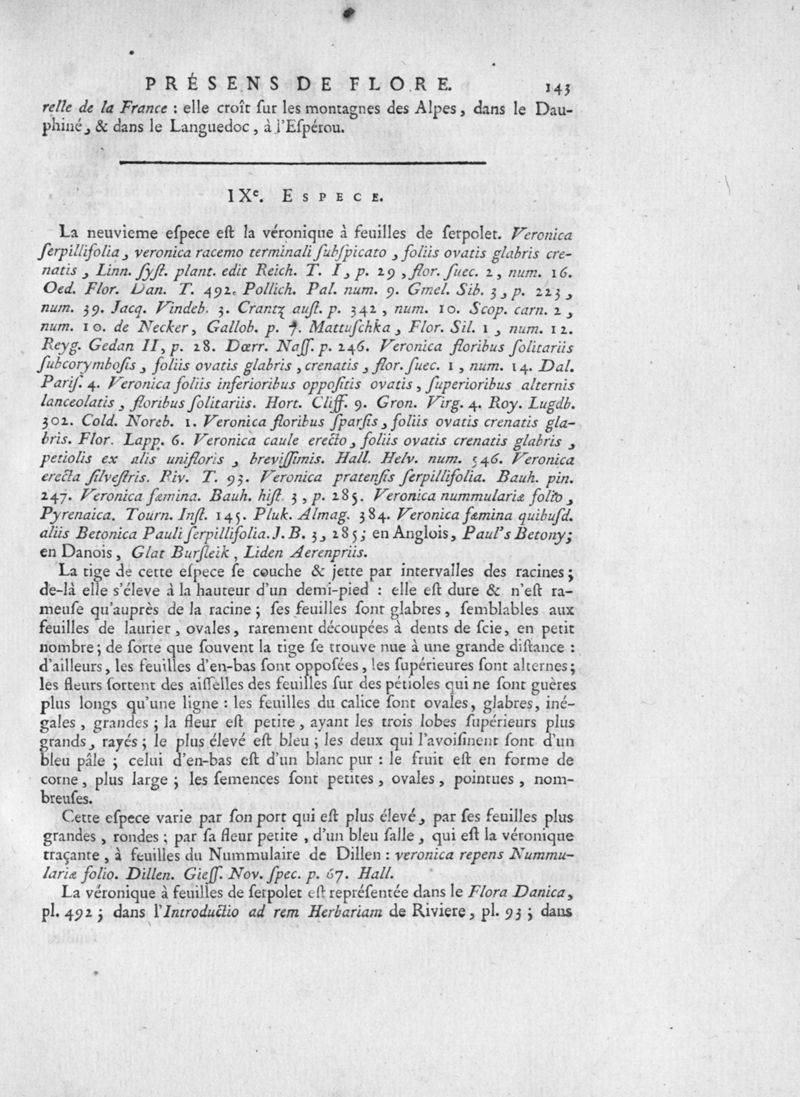 PRÉSENS DE FLORE. 143
relle de la France : elle croît ſur les montagnes des Alpes, dans le Dau-
phiné, & dans le Languedoc, à l'Eſpérou.
IXe. ESPECE.
La neuvieme eſpece eſt la véronique à feuilles de ſerpolet. Veronica
ſerpillifolia, veronica racemo terminali ſubſpicato, foliis ovatis glabris cre-
natis, Linn. ſyſt. plant. edit Reich. T. I, p. 29, flor. ſuec. 2, num. 16.
Oed. Flor. Dan. T. 492. Pollich. Pal. num. 9. Gmel. Sib. 3, p. 223,
num. 39. Jacq. Vindeb. 3. Crantz auſt. p. 342, num. 10. Scop. carn. 2,
num. 10. de Necker, Gallob. p. 7. Mattuſchka, Flor. Sil. 1, num. 12.
Reyg. Gedan II, p. 28. Dœrr. Naſſ. p. 246. Veronica floribus ſolitariis
ſubcorymboſis, foliis ovatis glabris, crenatis, flor. ſuec. 1, num. 14. Dal.
Pariſ. 4. Veronica foliis inferioribus oppoſitis ovatis, ſuperioribus alternis
lanceolatis, floribus ſolitariis. Hort. Cliff. 9. Gron. Virg. 4. Roy. Lugdb.
302. Cold. Noreb. 1. Veronica floribus ſparſis, foliis ovatis crenatis gla-
bris. Flor. Lapp. 6. Veronica caule erecto, foliis ovatis crenatis glabris,
petiolis ex alis unifloris, breviſſimis. Hall. Helv. num. 546. Veronica
erecta ſilveſtris. Riv. T. 93. Veronica pratenſis ſerpillifolia. Bauh. pin.
247. Veronica fæmina. Bauh. hiſt. 3, p. 285. Veronica nummulariæ folio,
Pyrenaica. Tourn. Inſt. 145. Pluk. Almag. 384. Veronica fæmina quibuſd.
aliis Betonica Pauli ſerpillifolia. J. B. 3, 285; en Anglois, Paul's Betony;
en Danois, Glat Burſleik, Liden Aerenpriis.
La tige de cette eſpece ſe couche & jette par intervalles des racines;
de-là elle s'éleve à la hauteur d'un demi-pied : elle eſt dure & n'eſt ra-
meuſe qu'auprès de la racine; ſes feuilles ſont glabres, ſemblables aux
feuilles de laurier, ovales, rarement découpées à dents de ſcie, en petit
nombre; de ſorte que ſouvent la tige ſe trouve nue à une grande diſtance :
d'ailleurs, les feuilles d'en-bas ſont oppoſées, les ſupérieures ſont alternes;
les fleurs ſortent des aiſſelles des feuilles ſur des pétioles qui ne ſont guères
plus longs qu'une ligne : les feuilles du calice ſont ovales, glabres, iné-
gales, grandes; la fleur eſt petite, ayant les trois lobes ſupérieurs plus
grands, rayés; le plus élevé eſt bleu; les deux qui l'avoiſinent ſont d'un
bleu pâle; celui d'en-bas eſt d'un blanc pur : le fruit eſt en forme de
corne, plus large; les ſemences ſont petites, ovales, pointues, nom-
breuſes.
Cette eſpece varie par ſon port qui eſt plus élevé, par ſes feuilles plus
grandes, rondes; par ſa fleur petite, d'un bleu ſalle, qui eſt la véronique
traçante, à feuilles du Nummulaire de Dillen : veronica repens Nummu-
lariæ folio. Dillen. Gieſſ. Nov. ſpec. p. 67. Hall.
La véronique à feuilles de ſerpolet eſt repréſentée dans le Flora Danica,
pl. 492; dans l'Introductio ad rem Herbariam de Riviere, pl. 93; dans